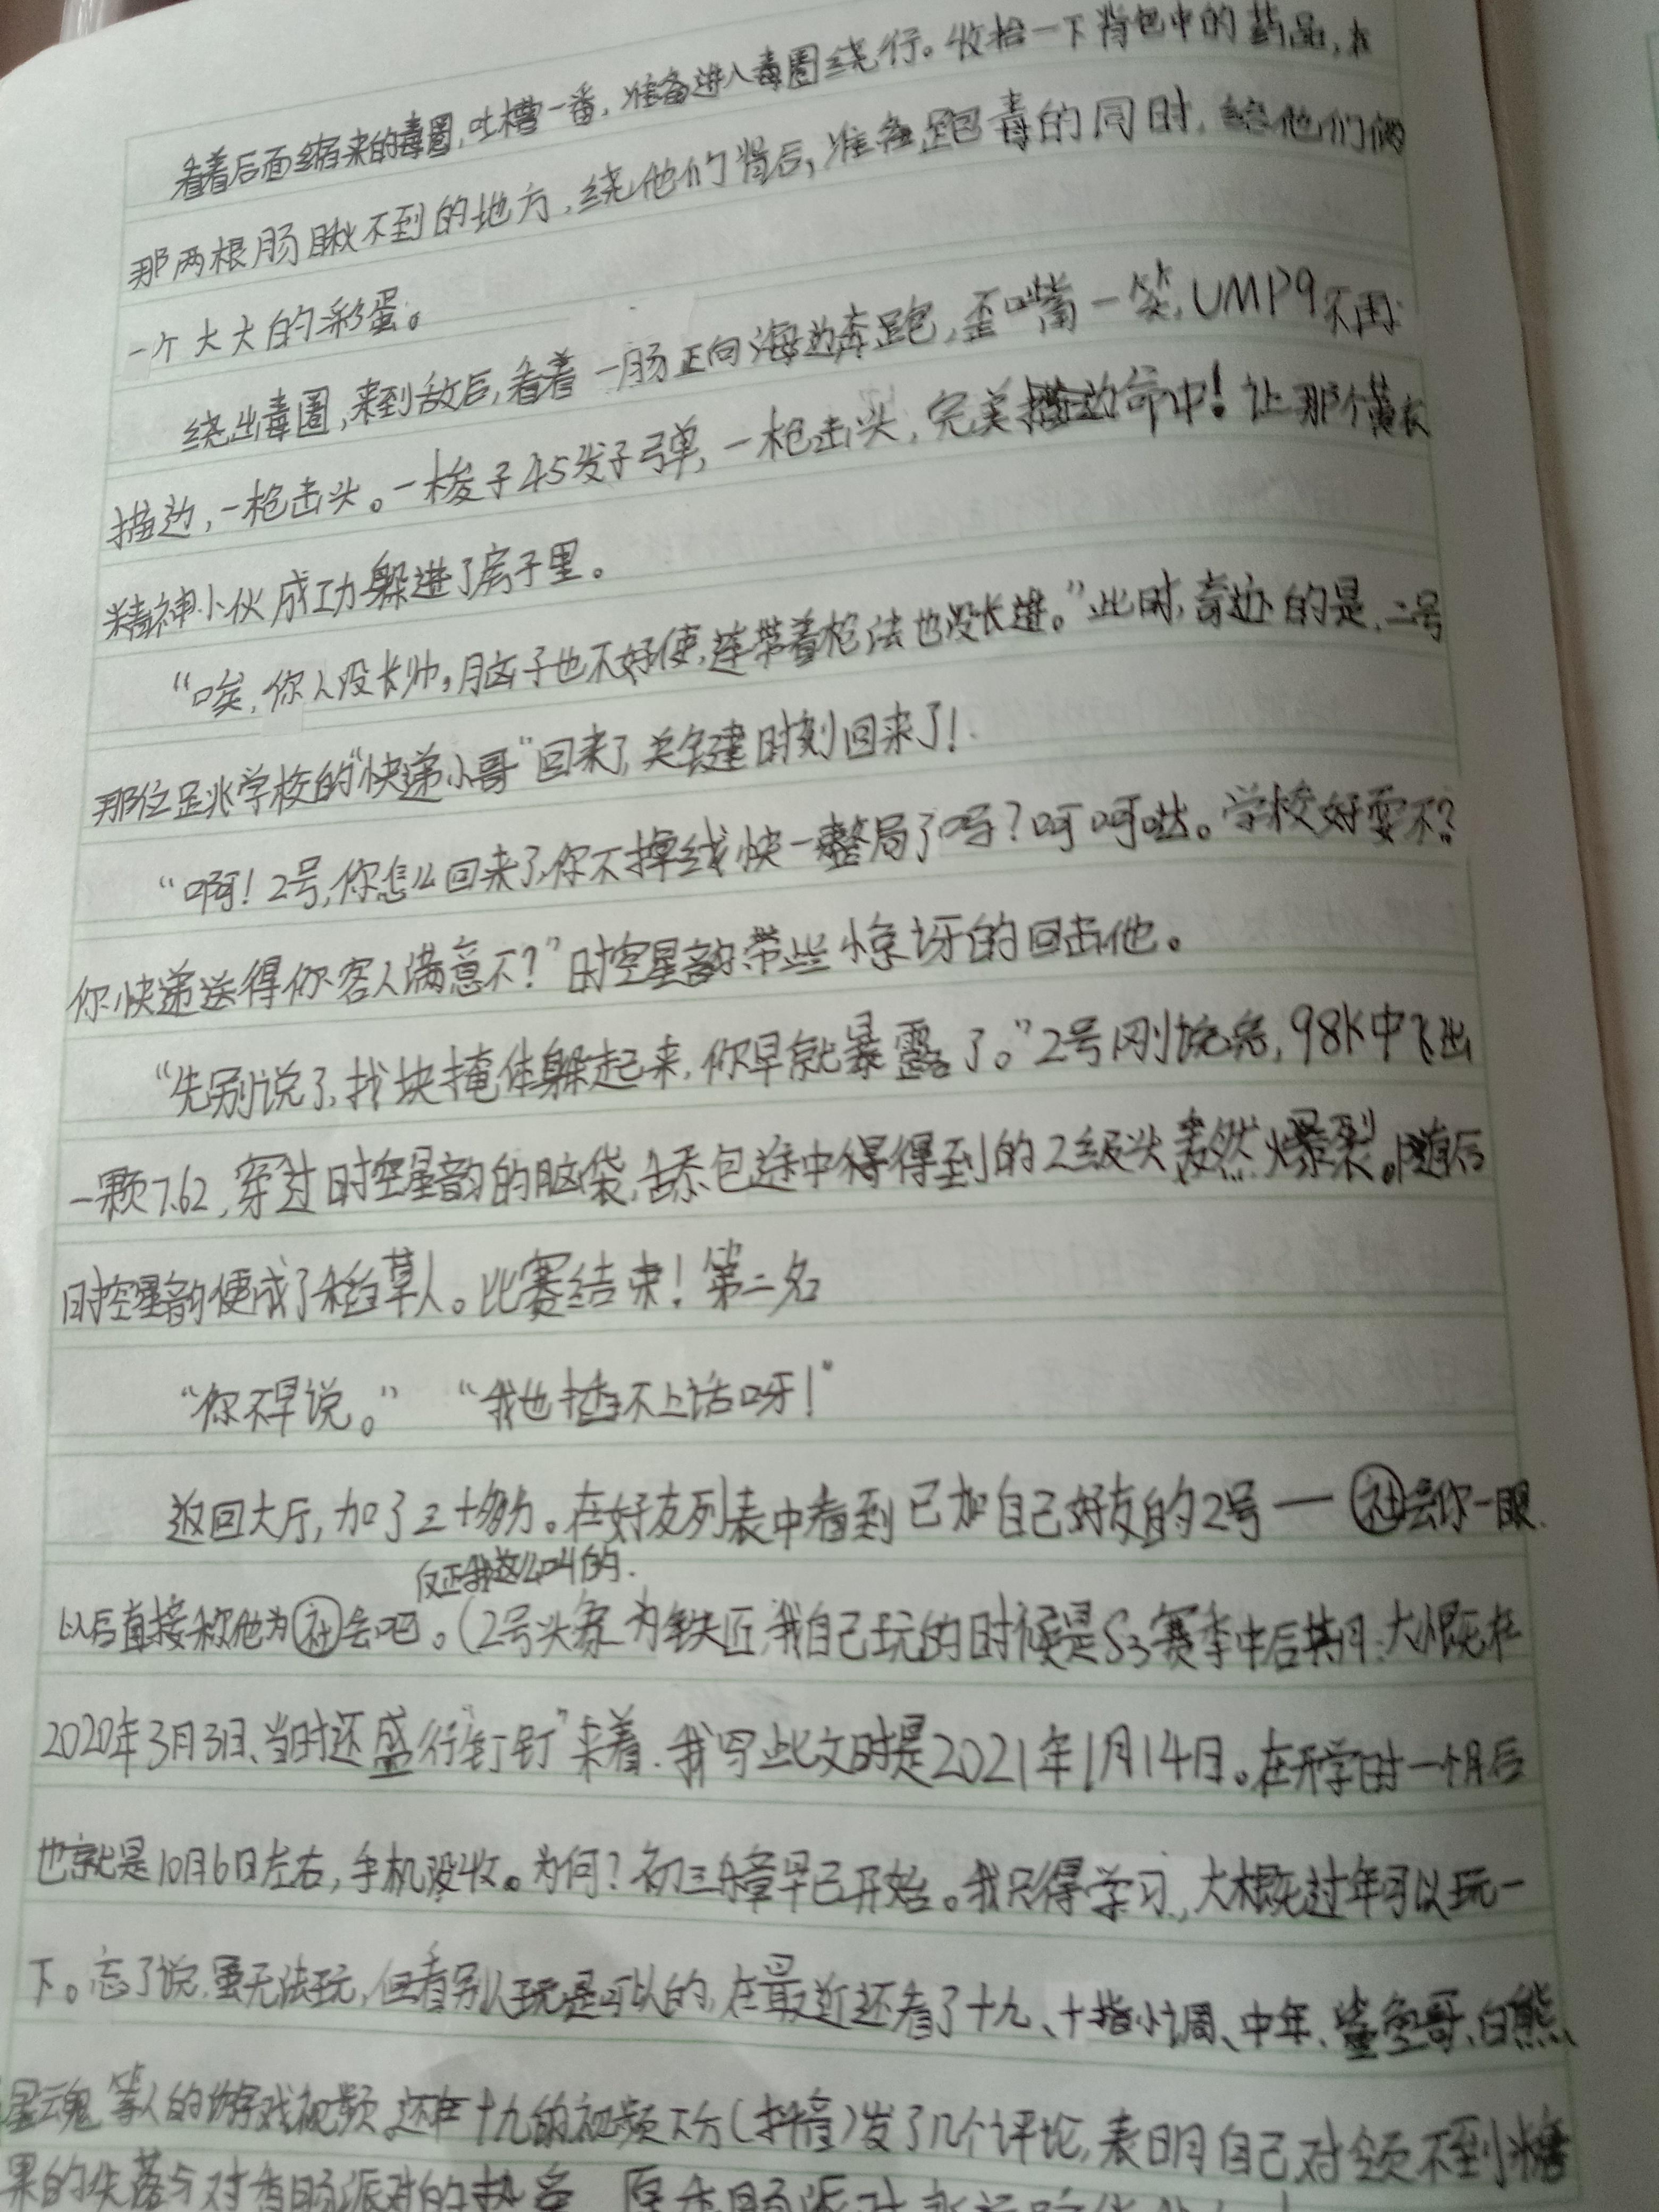 看着后面缩来的毒圈,吐槽一番,准备进入毒圈绕行。收拾一下背包中的药品,在
那两根肠瞅不到的地方,绕他们背后,准备跑毒的同时,给他们俩
一个大大的彩蛋。
绕出毒圈,来到敌后,看着一肠正向海边奔跑,歪嘴一笑,UMP9不用
描边,一枪击头。一梭子45发子弹,一枪击头,完美描边命中!让那个黄衣
精神小伙成功躲进了房子里。
“唉,你人没长帅,脑子也不好使,连带着枪法也没长进。”此时,奇迹的是,二号
那位足兆学校的“快递小哥”回来了,关键时刻回来了!
“啊!2号,你怎么回来了,你不掉线快一整局了吗?呵呵哒。学校好耍不?
你快递送得你客人满意不?”时空星韵带些惊讶的回击他。
“先别说了,找块掩体躲起来,你早就暴露了。”2号刚说完,98K中飞出
一颗7.62,穿过时空星韵的脑袋,舔包途中得到的2级头轰然爆裂。随后
时空星韵便成了稻草人。比赛结束!第二名
“你不早说。” “我也插不上话呀!”
返回大厅,加了三十多分。在好友列表中看到已加自己好友的2号一社会你一眼.
仅正我这么叫的.
以后直接称他为社会吧。(2号头像为铁匠,我自己玩的时候是S3赛季中后期.大概在
2020年3月3日、当时还盛行“钉钉”来着.我写此文时是2021年1月14日。在开学时一个月后
也就是10月6日左右,手机没收。为何?初三乐章早已开始。我只得学习,大概过年可以玩一
下。忘了说,虽无法玩,但看别人玩是可以的,在最近还看了十九、十指小调、中年、鲨鱼哥、白熊、
星魂等人的游戏视频,还在十九的视频下方(抖音)发了几个评论,表明自己对领不到糖
果的失落与对香肠派对的热爱